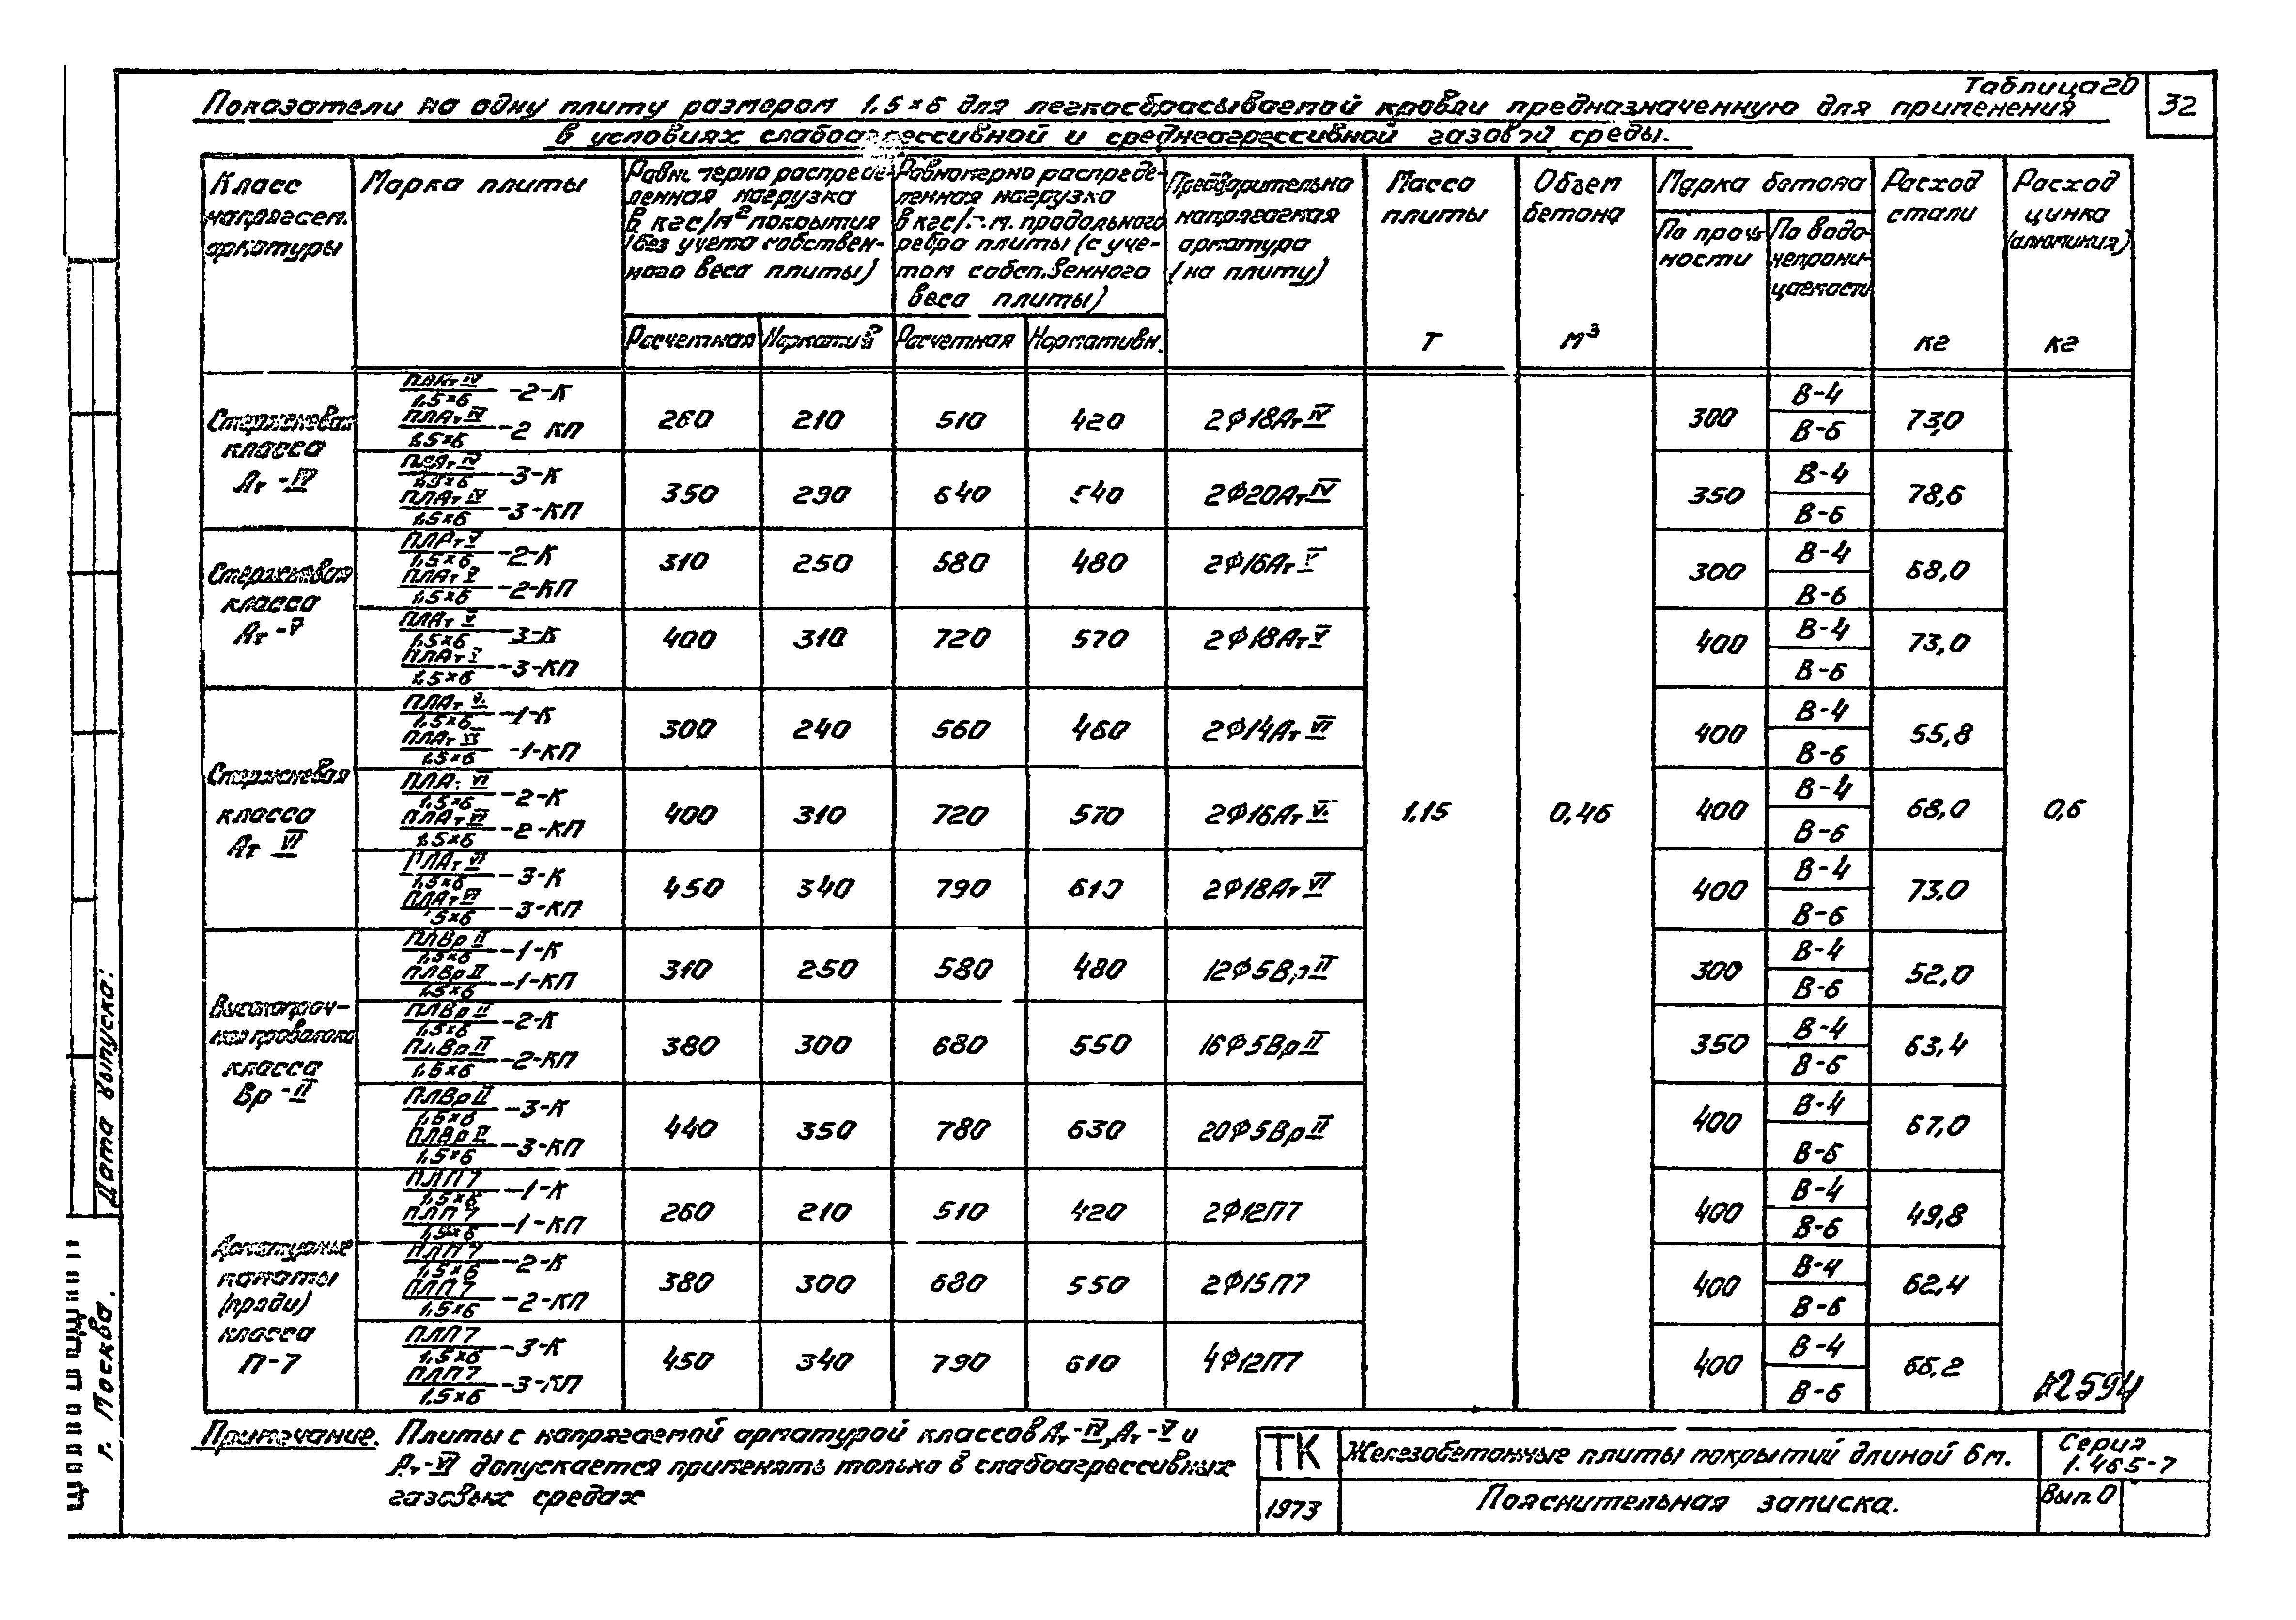 Таблица 20
32
Показатели на одну плиту размером 1,5×6 для легкосбрасываемой кровли предназначенную для применения
в условиях слабоагрессивной и среднеагрессивной газовой среды.
Класс напрягаем. арматуры
Марка плиты
Равномерно распределенная нагрузка в кгс/м² покрытия (без учета собственного веса плиты)
Равномерно распределенная нагрузка в кгс/п.м. продольного ребра плиты (с учетом собственного веса плиты)
Предварительно напрягаемая арматура (на плиту)
Масса плиты
Объем бетона
Марка бетона
По прочности
По водонепроницаемости
Расход стали
Расход цинка (алюминия)
Расчетная Норматив Расчетная Нормативн. т м³ кг кг
Стержневая класса Ат-IV
ПЛАт IV/1,5×6 -2-К
ПЛАт IV/1,5×6 -2 КП
260 210 510 420 2Ф18Ат IV 300 В-4 В-6 73,0
ПЛАт IV/1,5×6 -3-К
ПЛАт IV/1,5×6 -3-КП
350 290 640 540 2Ф20Ат IV 350 В-4 В-6 78,6
Стержневая класса Ат-V
ПЛАт V/1,5×6 -2-К
ПЛАт V/1,5×6 -2-КП
310 250 580 480 2Ф16Ат V 300 В-4 В-6 68,0
ПЛАт V/1,5×6 -3-К
ПЛАт V/1,5×6 -3-КП
400 310 720 570 2Ф18Ат V 400 В-4 В-6 73,0
Стержневая класса Ат VI
ПЛАт VI/1,5×6 -1-К
ПЛАт VI/1,5×6 -1-КП
300 240 560 460 2Ф14Ат VI 400 В-4 В-6 55,8
ПЛАт VI/1,5×6 -2-К
ПЛАт VI/1,5×6 -2-КП
400 310 720 570 2Ф16Ат VI 1,15 0,46 400 В-4 В-6 68,0 0,6
ПЛАт VI/1,5×6 -3-К
ПЛАт VI/1,5×6 -3-КП
450 340 790 610 2Ф18Ат VI 400 В-4 В-6 73,0
Высокопрочная проволока класса Вр-II
ПЛВр II/1,5×6 -1-К
ПЛВр II/1,5×6 -1-КП
310 250 580 480 12Ф5Вр II 300 В-4 В-6 52,0
ПЛВр II/1,5×6 -2-К
ПЛВр II/1,5×6 -2-КП
380 300 680 550 16Ф5Вр II 350 В-4 В-6 63,4
ПЛВр II/1,5×6 -3-К
ПЛВр II/1,5×6 -3-КП
440 350 780 630 20Ф5Вр II 400 В-4 В-6 67,0
Арматурные канаты (пряди) класса П-7
ПЛП7/1,5×6 -1-К
ПЛП7/1,5×6 -1-КП
260 210 510 420 2Ф12П7 400 В-4 В-6 49,8
ПЛП7/1,5×6 -2-К
ПЛП7/1,5×6 -2-КП
380 300 680 550 2Ф15П7 400 В-4 В-6 62,4
ПЛП7/1,5×6 -3-К
ПЛП7/1,5×6 -3-КП
450 340 790 610 4Ф12П7 400 В-4 В-6 66,2
12594
Примечание. Плиты с напрягаемой арматурой классов Ат-IV, Ат-V и
Ат-VI допускается применять только в слабоагрессивных
газовых средах
ТК
1973
Железобетонные плиты покрытий длиной 6 м.
Пояснительная записка.
Серия
1.465-7
Вып. 0
Дата выпуска:
г. Москва.